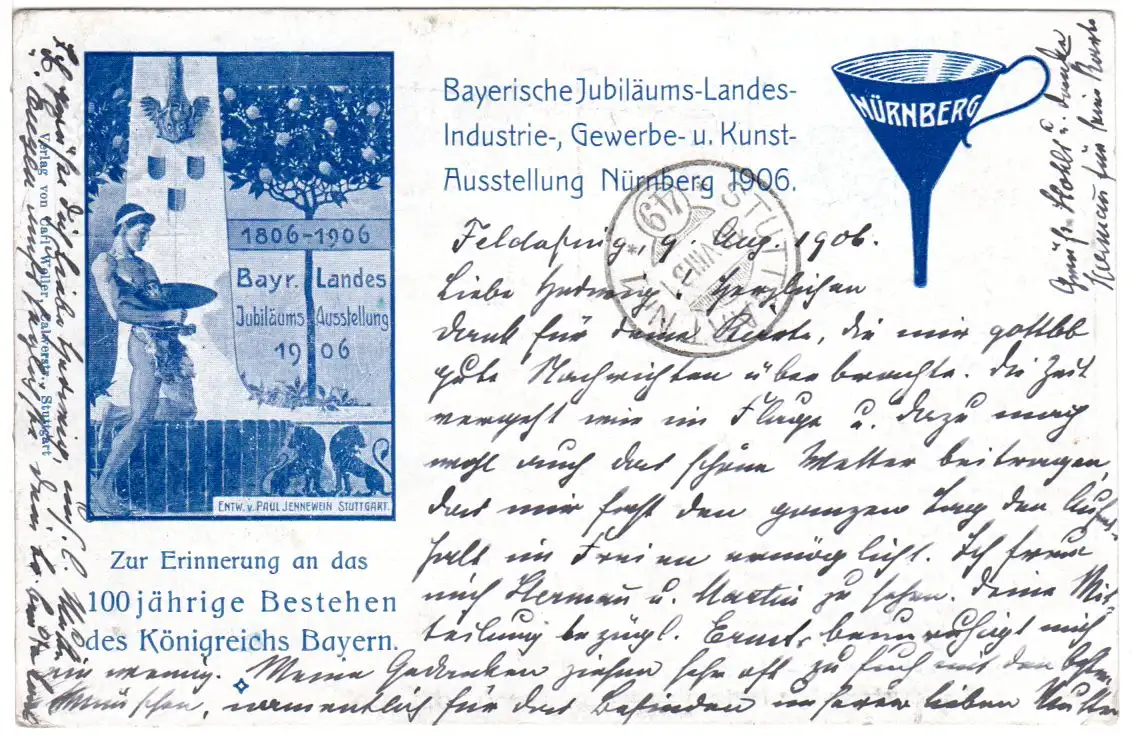 Bayerische Jubiläums-Landes-
Industrie-, Gewerbe- u. Kunst-
Ausstellung Nürnberg 1906.
NÜRNBERG
1806-1906
Bayr. Landes
Jubiläums Ausstellung
1906
ENTW. v. PAUL JENNEWEIN STUTTGART.
Verlag von Carl Weiler, Calwerstr., Stuttgart
Zur Erinnerung an das
100jährige Bestehen
des Königreichs Bayern.
STUTTGART
Feldafing, 9. Aug. 1906.
Liebe Hedwig! Herzlichen
Dank für Deine Karte, die mir gottlob
gute Nachrichten überbrachte. Die Zeit
vergeht wie im Fluge u. dazu mag
wohl auch das schöne Wetter beitragen,
das mir fast den ganzen Tag den Auf-
halt im Freien ermöglicht. Ich freue
mich Herman u. Martin zu sehen. Deine Mit-
teilung bezügl. Ernst, beunruhigt mich
ein wenig. Meine Gedanken ziehen sehr oft zu Euch mit den besten
Wünschen, namentlich für das Befinden unserer lieben Mutter
Herman für seine Karte